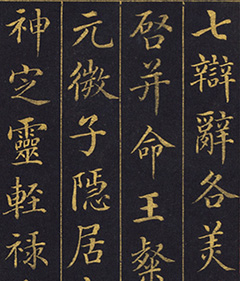 七辯辭各美
啓并命王粲
元微子隱居
神定靈輕祿